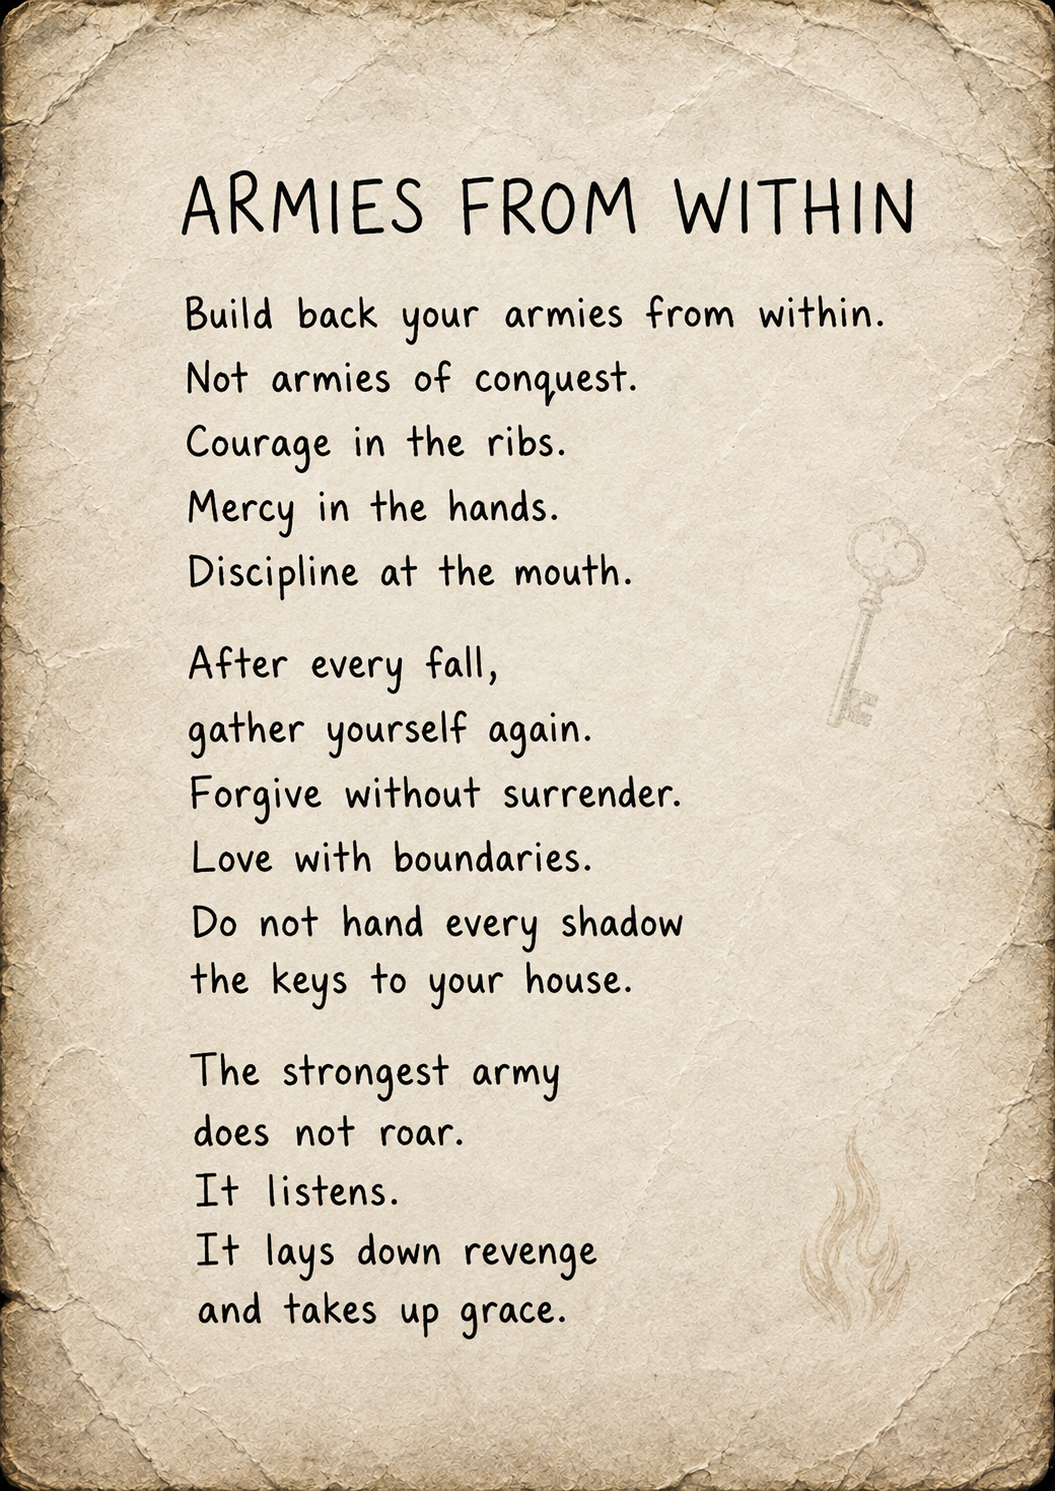 ARMIES FROM WITHIN
Build back your armies from within.
Not armies of conquest.
Courage in the ribs.
Mercy in the hands.
Discipline at the mouth.
After every fall,
gather yourself again.
Forgive without surrender.
Love with boundaries.
Do not hand every shadow
the keys to your house.
The strongest army
does not roar.
It listens.
It lays down revenge
and takes up grace.